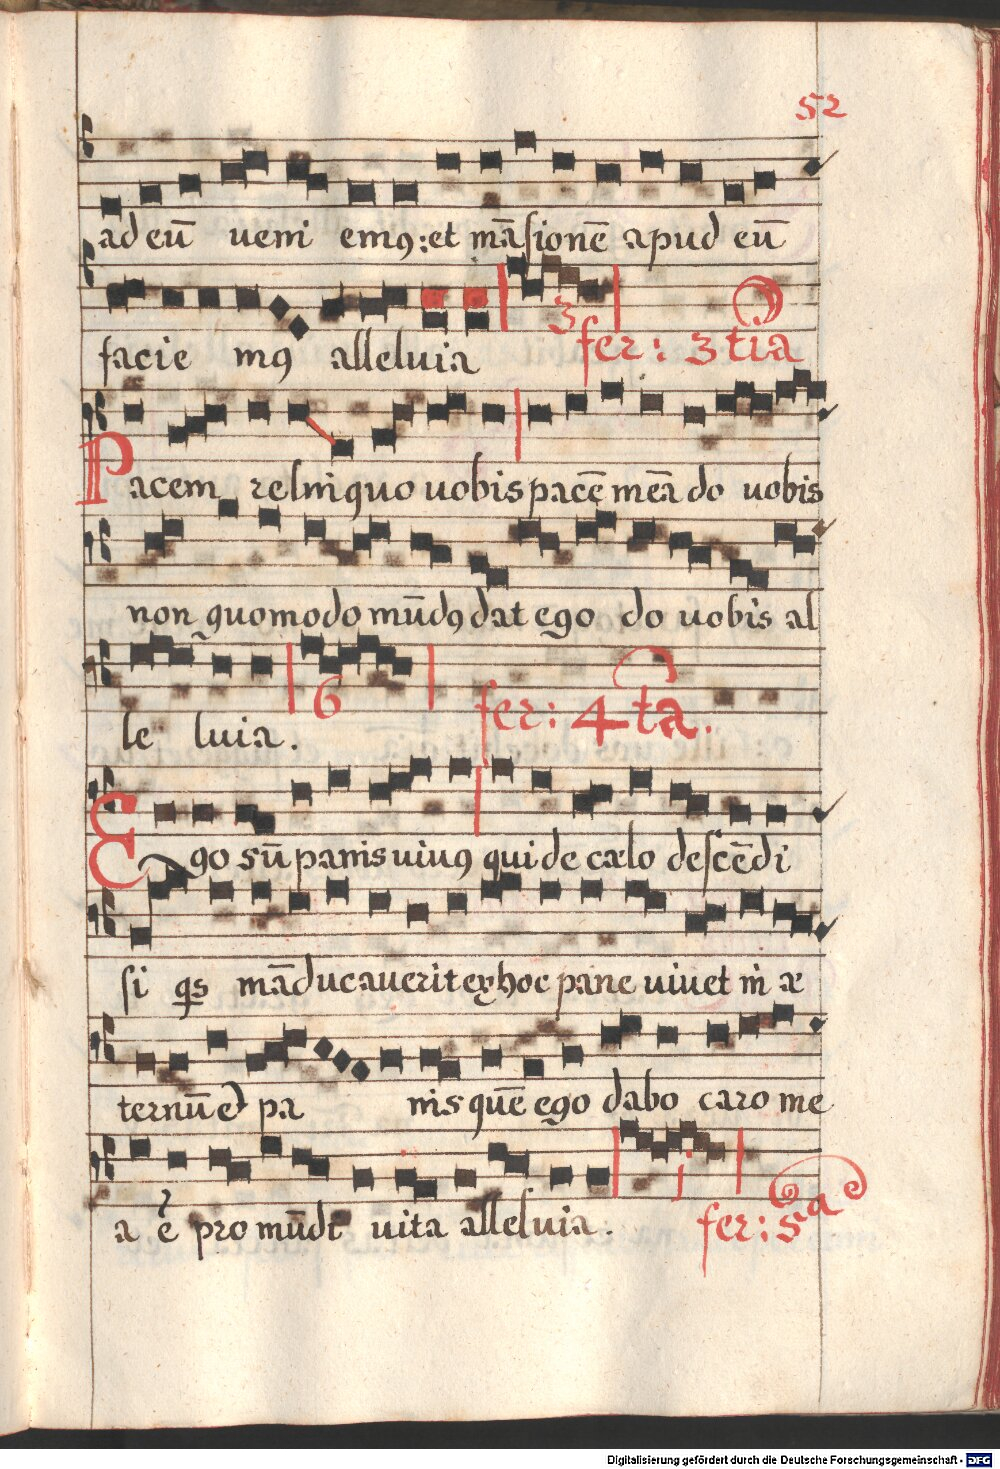 52
ad eū ueni emꝰ: et māsionē apud eū
facie mꝰ alleluia 3 fer: 3 tia
Pacem relinquo uobis pacē meā do uobis
non quomodo mūdꝰ dat ego do uobis al
le luia. 6 fer: 4 ta.
Ego sū panis uiuꝰ qui de cælo descēdi
si qs māducauerit ex hoc pane uiuet in æ
ternū et pa nis quē ego dabo caro me
a ē pro mūdi uita alleluia. 1 fer: 5a
Digitalisierung gefördert durch die Deutsche Forschungsgemeinschaft - DFG